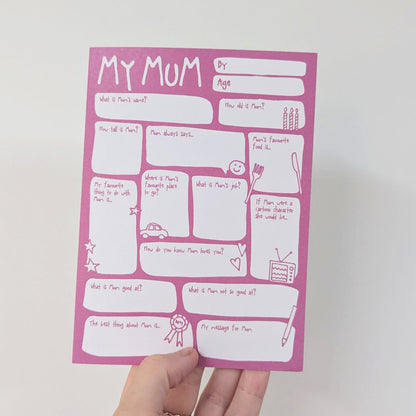 MY MUM
By
Age
What is Mum's name?
How old is Mum?
How tall is Mum?
Mum always says...
Mum's favourite
food is...
My favourite
thing to do with
Mum is...
Where is Mum's
favourite place
to go?
What is Mum's job?
If Mum were a
cartoon character
she would be...
How do you know Mum loves you?
What is Mum good at?
What is Mum not so good at?
The best thing about Mum is...
My message for Mum